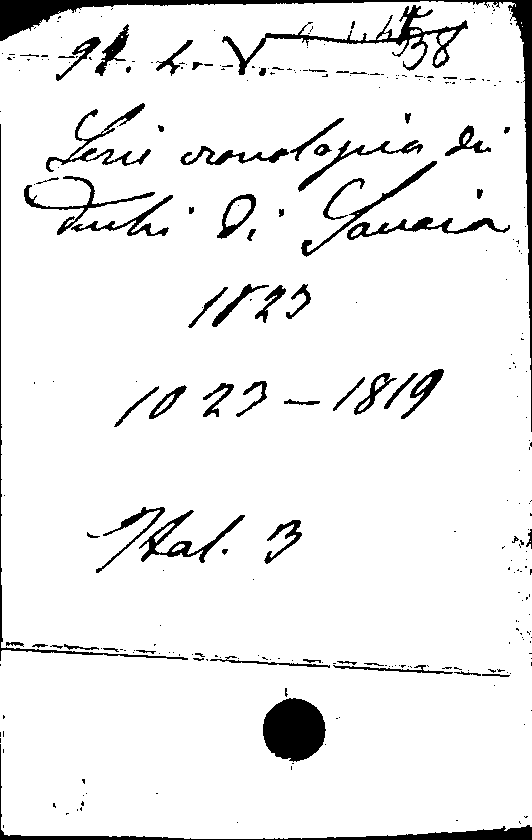 91. L. V. 38
Serie cronologica di
duchi di Savoia
1823
1023 — 1819
Ital. 3